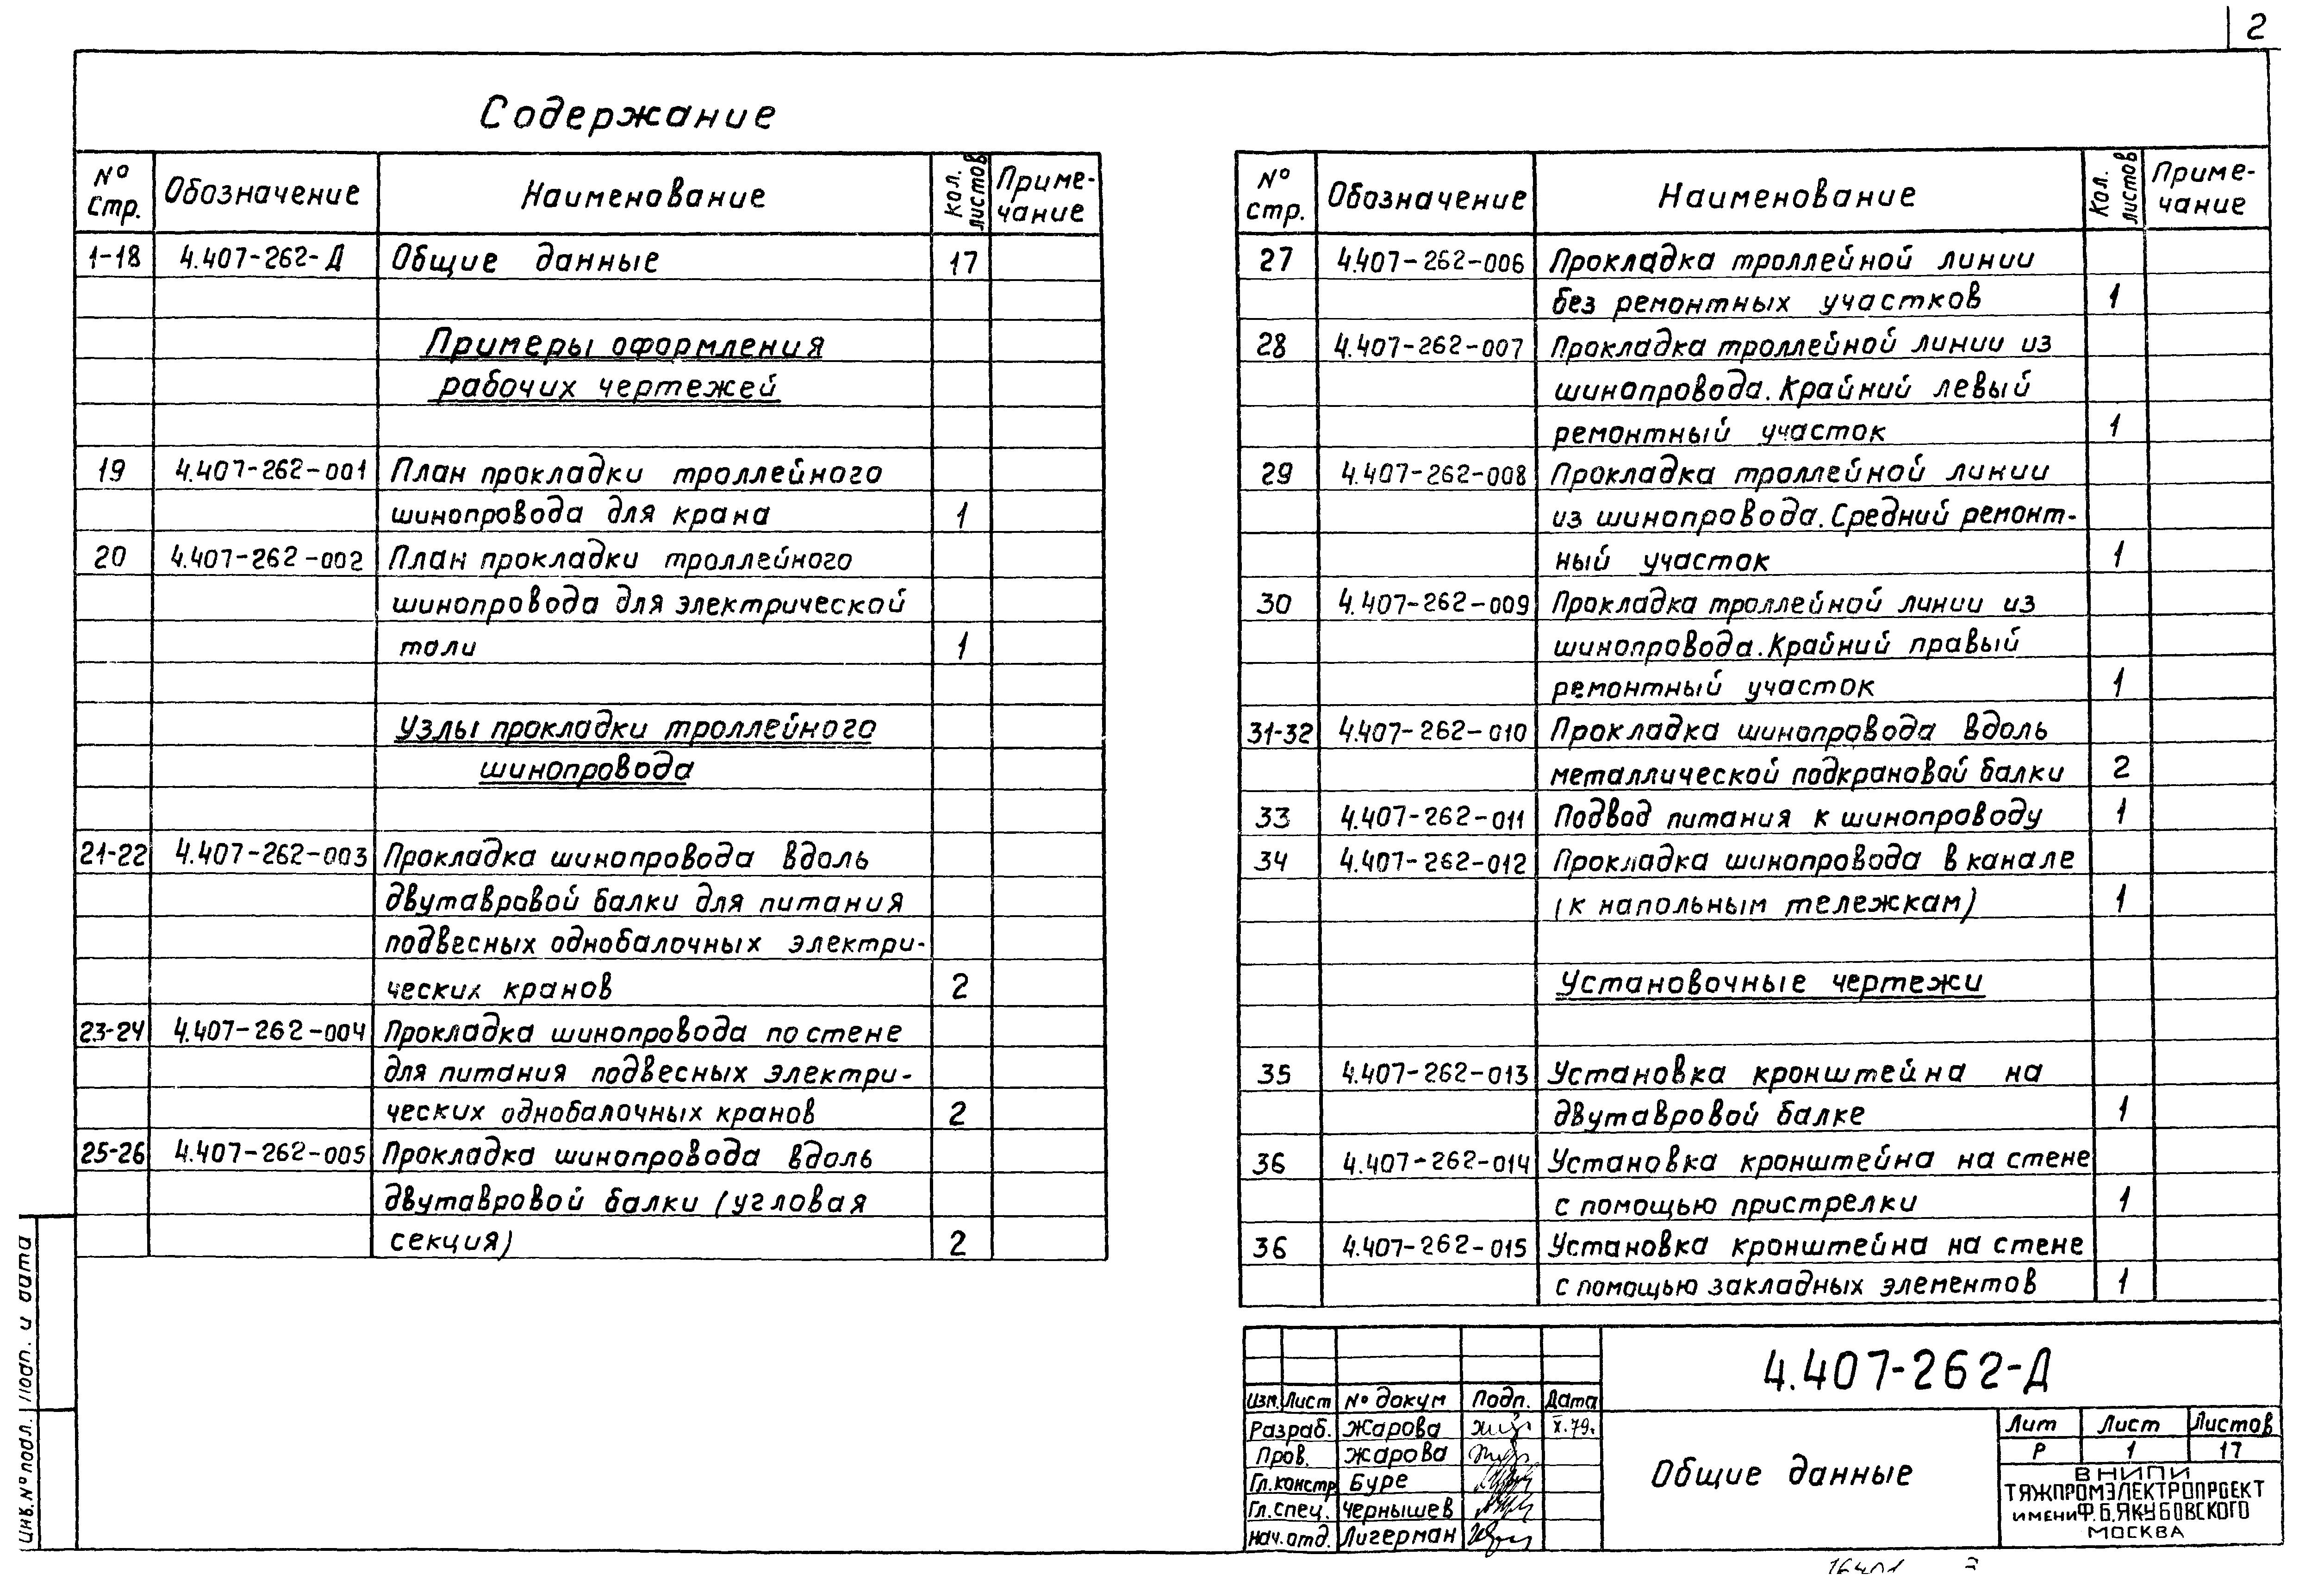 2
Содержание
№ Стр. Обозначение Наименование Кол. листов Примечание
1-18 4.407-262-Д Общие данные 17
Примеры оформления
рабочих чертежей
19 4.407-262-001 План прокладки троллейного
шинопровода для крана 1
20 4.407-262-002 План прокладки троллейного
шинопровода для электрической
тали 1
Узлы прокладки троллейного
шинопровода
21-22 4.407-262-003 Прокладка шинопровода вдоль
двутавровой балки для питания
подвесных однобалочных электри-
ческих кранов 2
23-24 4.407-262-004 Прокладка шинопровода по стене
для питания подвесных электри-
ческих однобалочных кранов 2
25-26 4.407-262-005 Прокладка шинопровода вдоль
двутавровой балки (угловая
секция) 2
№ стр. Обозначение Наименование Кол. листов Примечание
27 4.407-262-006 Прокладка троллейной линии
без ремонтных участков 1
28 4.407-262-007 Прокладка троллейной линии из
шинопровода. Крайний левый
ремонтный участок 1
29 4.407-262-008 Прокладка троллейной линии
из шинопровода. Средний ремонт-
ный участок 1
30 4.407-262-009 Прокладка троллейной линии из
шинопровода. Крайний правый
ремонтный участок 1
31-32 4.407-262-010 Прокладка шинопровода вдоль
металлической подкрановой балки 2
33 4.407-262-011 Подвод питания к шинопроводу 1
34 4.407-262-012 Прокладка шинопровода в канале
(к напольным тележкам) 1
Установочные чертежи
35 4.407-262-013 Установка кронштейна на
двутавровой балке 1
36 4.407-262-014 Установка кронштейна на стене
с помощью пристрелки 1
36 4.407-262-015 Установка кронштейна на стене
с помощью закладных элементов 1
Инв. № подл. Подп. и дата
4.407-262-Д
Изм. Лист № докум Подп. Дата
Разраб. Жарова X.79г.
Пров. Жарова
Гл. констр Буре
Гл. спец. Чернышев
Нач. отд. Лигерман
Общие данные
Лит Лист Листов
Р 1 17
ВНИПИ
ТЯЖПРОМЭЛЕКТРОПРОЕКТ
ИМЕНИ Ф.Б.ЯКУБОВСКОГО
МОСКВА
16401